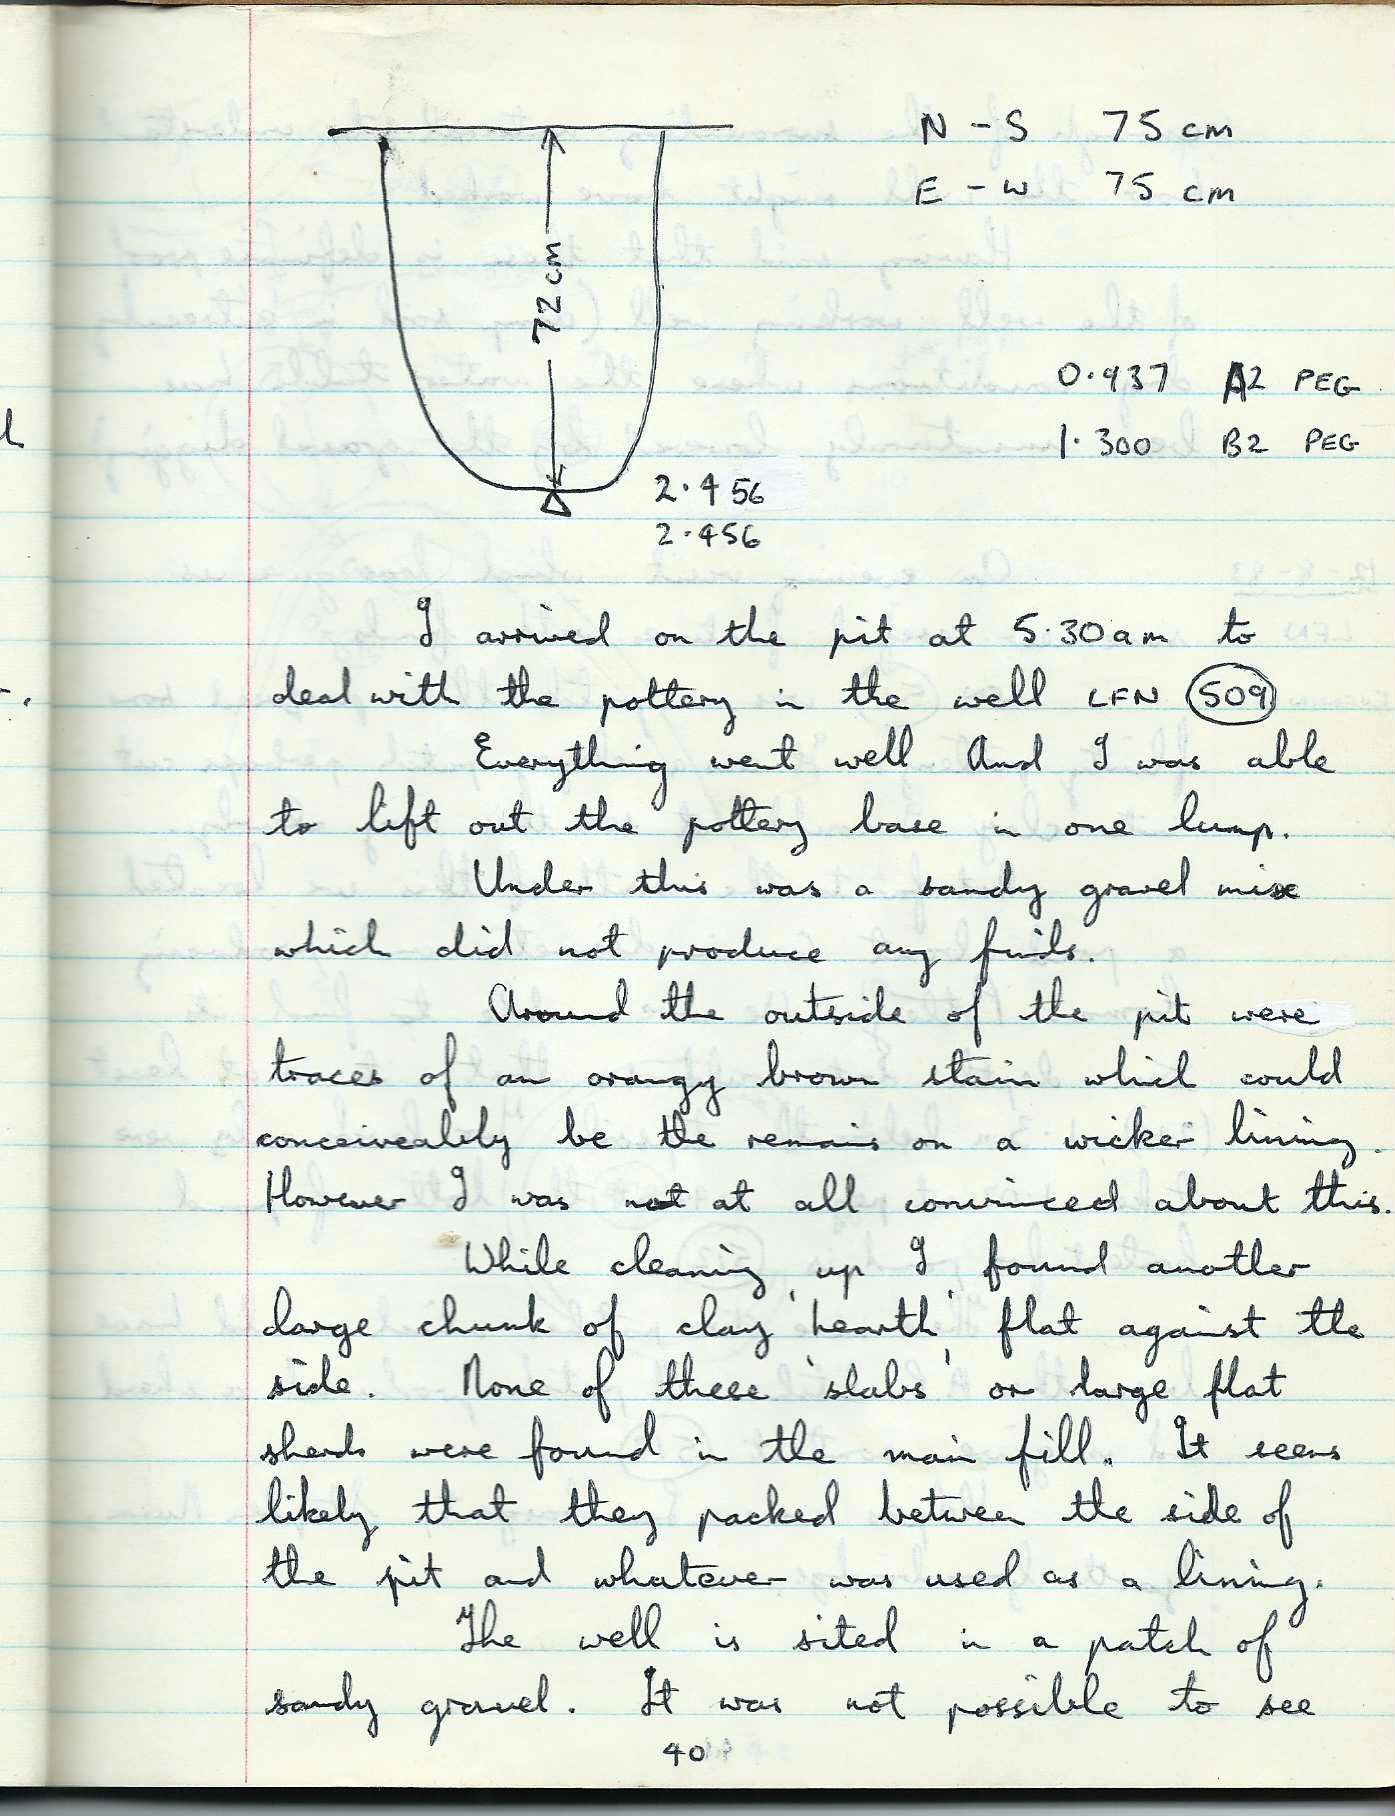 N - S 75 cm
E - W 75 cm
72 cm
0.937 A2 PEG
1.300 B2 PEG
2.456
2.456
I arrived on the pit at 5.30am to
deal with the pottery in the well LFN 509
Everything went well And I was able
to lift out the pottery base in one lump.
Under this was a sandy gravel mix
which did not produce any finds.
Around the outside of the pit were
traces of an orangy brown stain which could
conceiveably be the remains on a wicker lining.
However I was not at all convinced about this.
While cleaning up I found another
large chunk of clay 'hearth' flat against the
side. None of these 'slabs' or large flat
sherds were found in the main fill. It seems
likely that they packed between the side of
the pit and whatever was used as a lining.
The well is sited in a patch of
sandy gravel. It was not possible to see
40